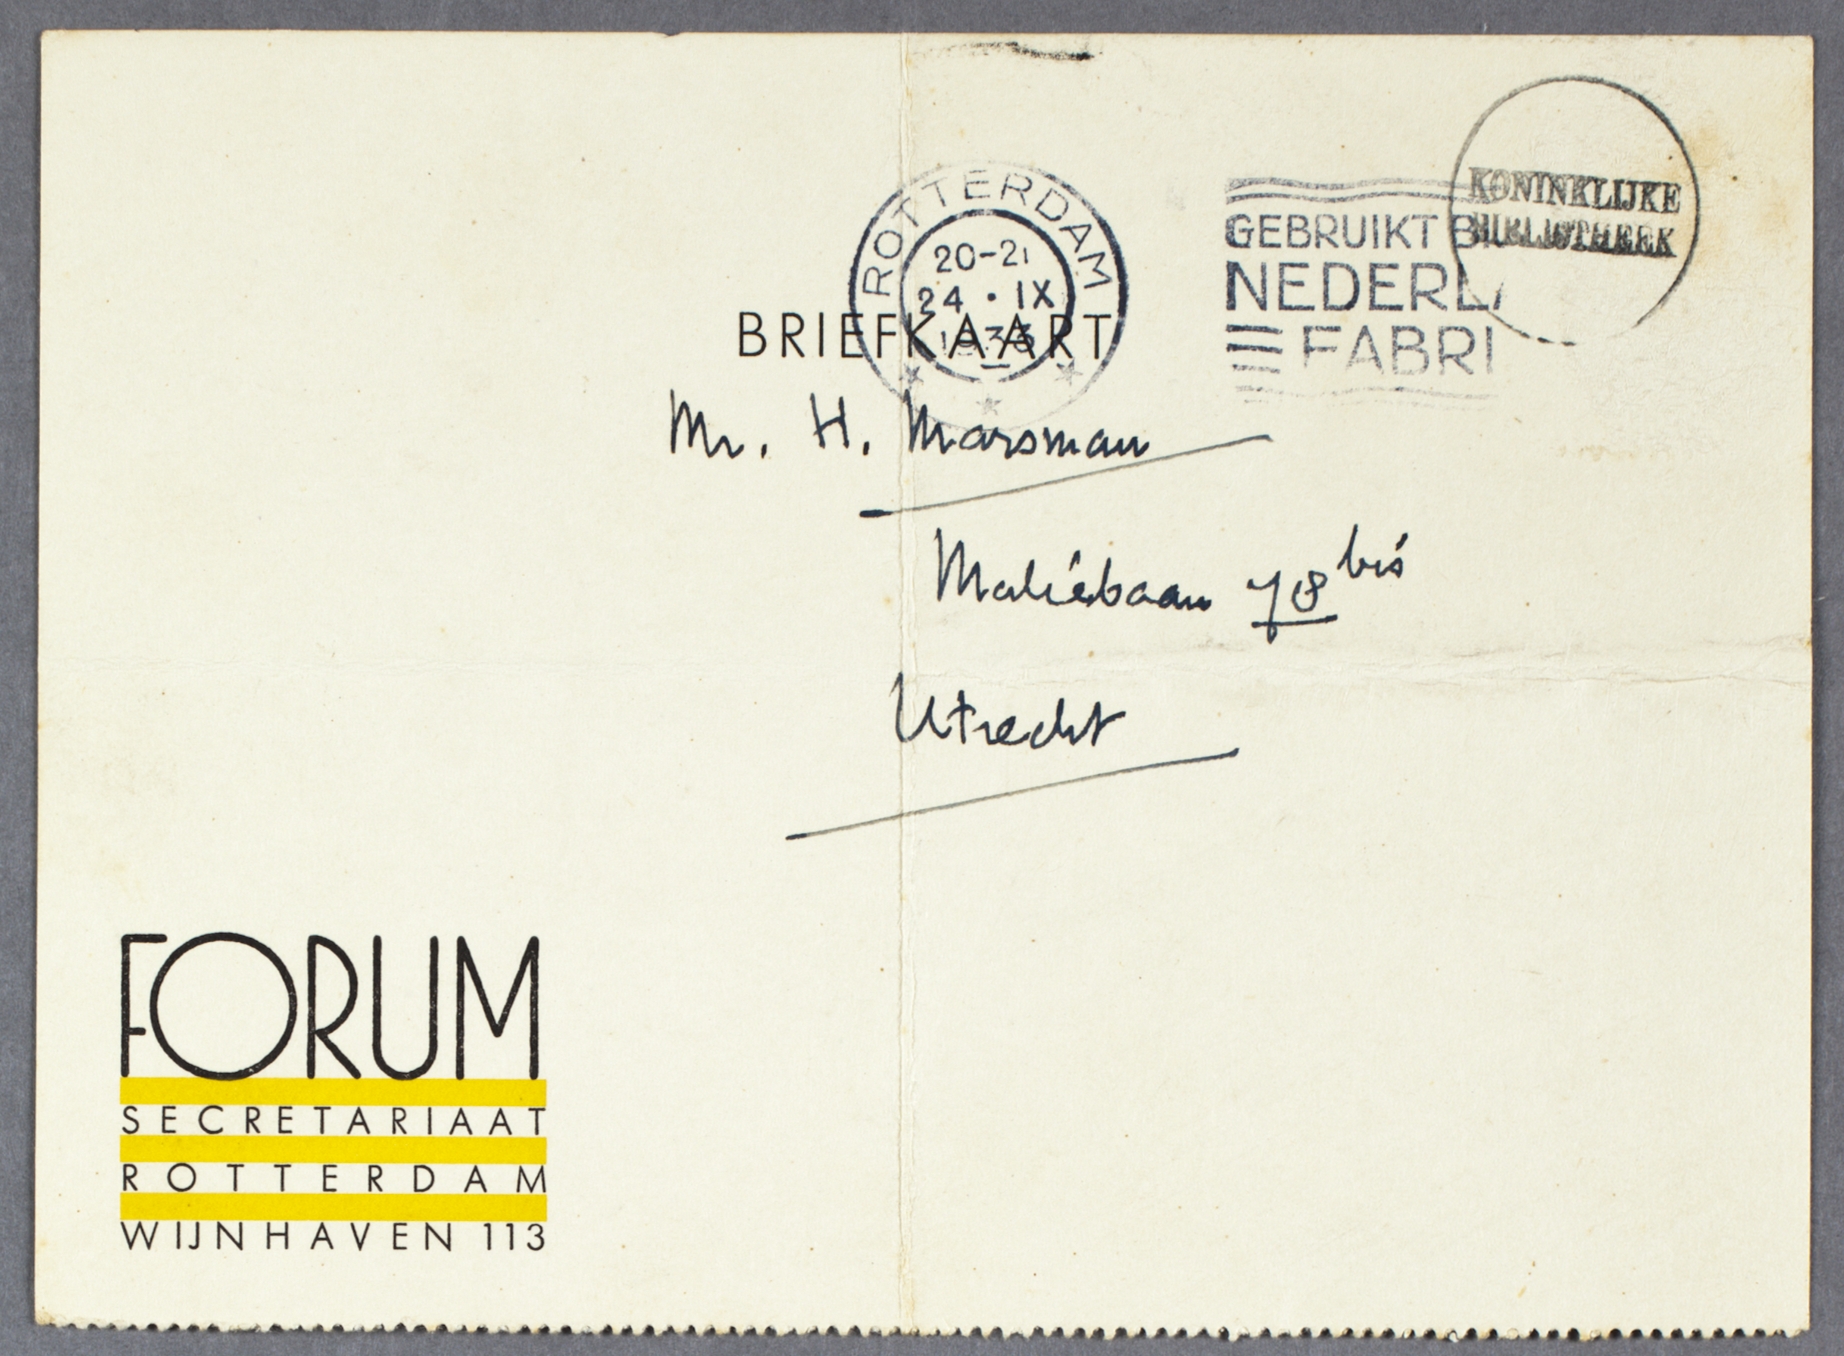 ROTTERDAM
20-21
24 · IX
GEBRUIKT
NEDERL
FABRI
KONINKLIJKE
BIBLIOTHEEK
BRIEFKAART
Mr. H. Marsman
Maliebaan 78 bis
Utrecht
FORUM
SECRETARIAAT
ROTTERDAM
WIJNHAVEN 113